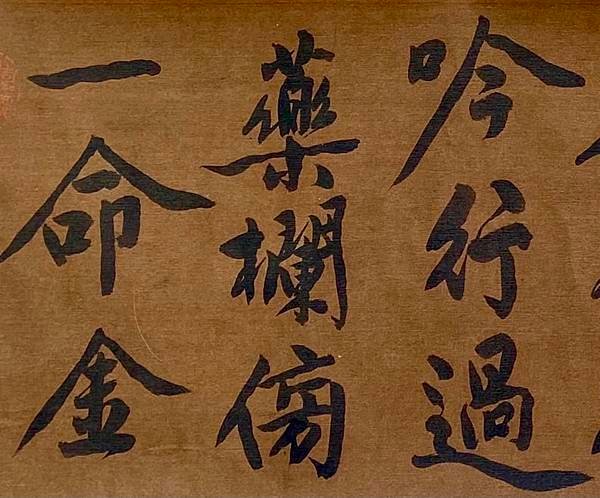 吟行過
藥欄傍
一命金